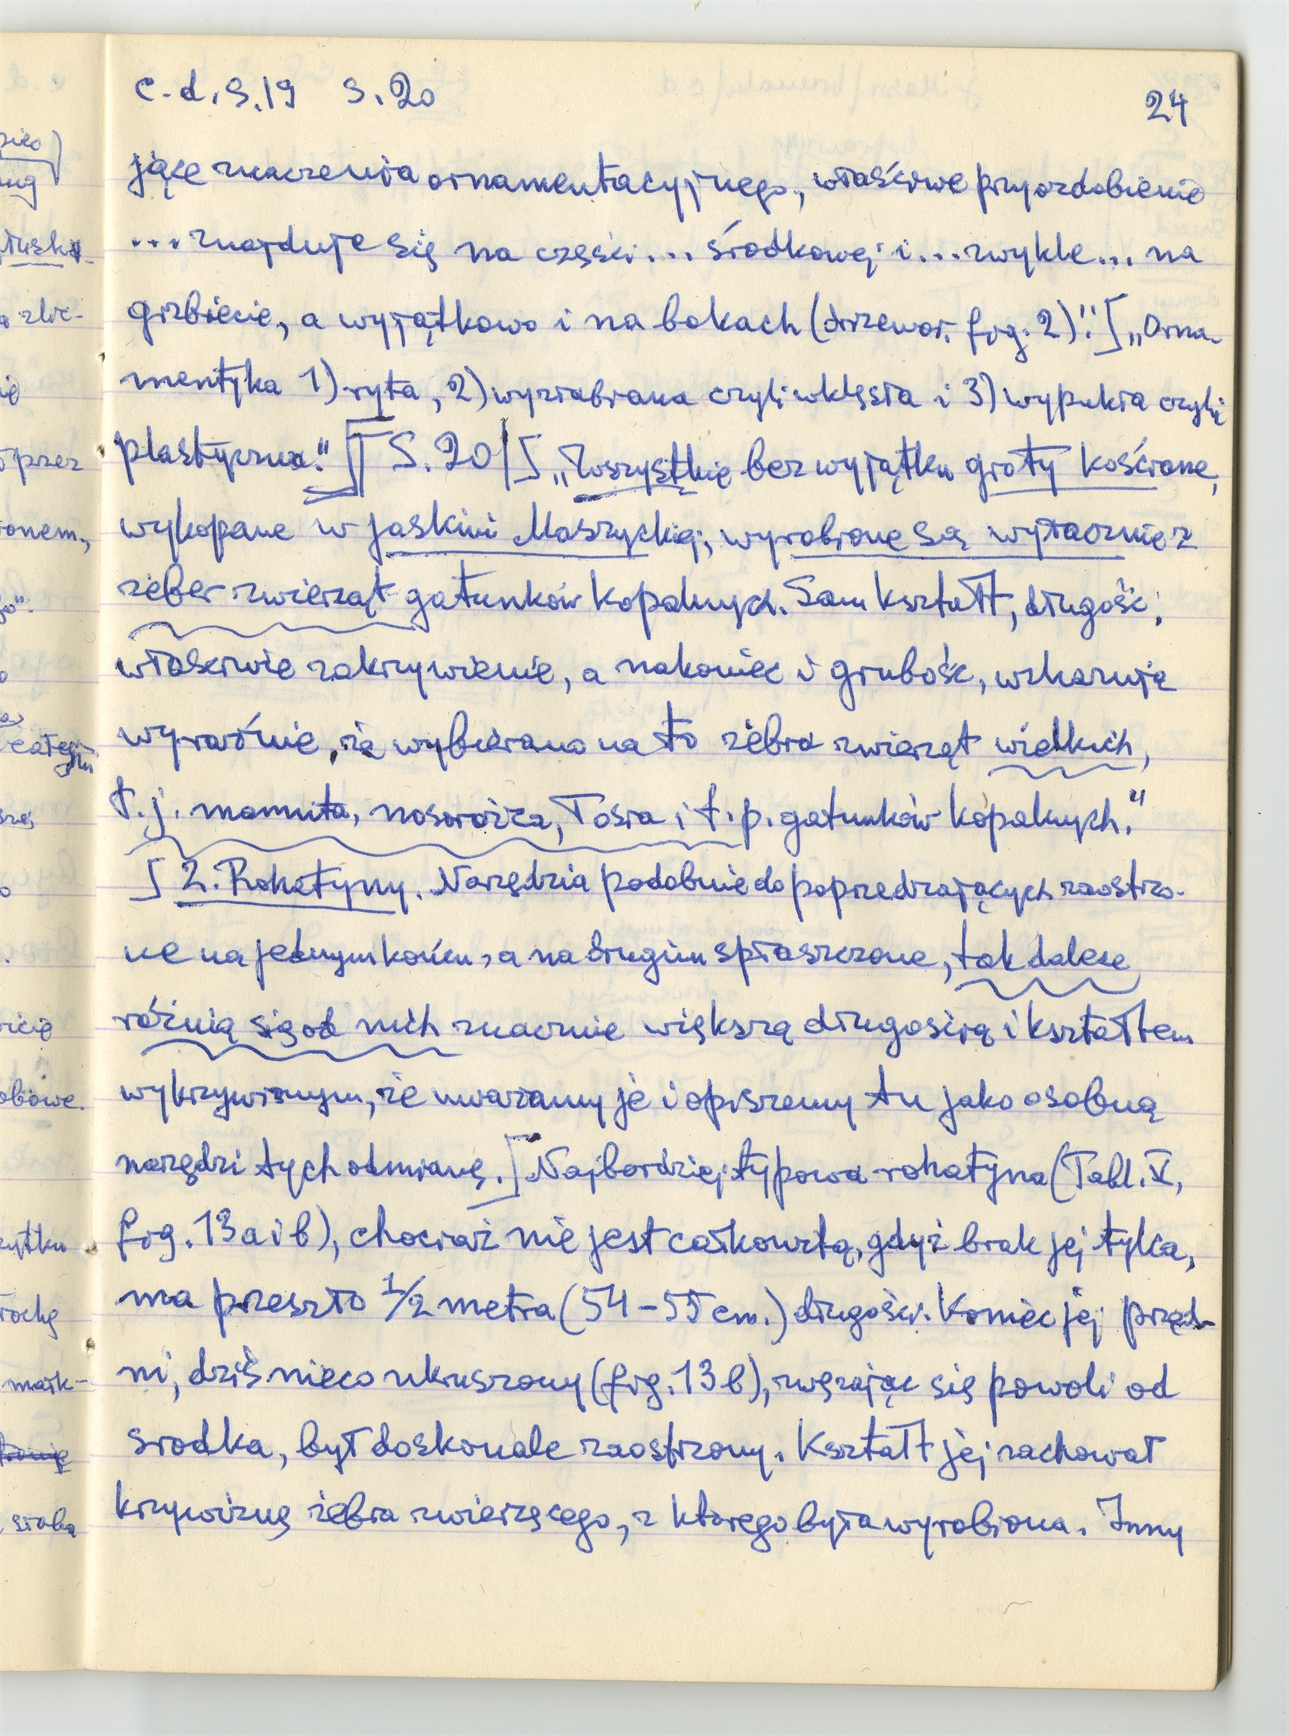 c.d.s.19 s.20 24
jące znaczenia ornamentacyjnego, właściwe przyozdobienie
...znajduje się na części... środkowej i...zwykle... na
grzbiecie, a wyjątkowo i na bokach (drzewor. fig. 2)".] „Orna-
mentyka 1) ryta, 2) wyrzabrana czyli wklęsła i 3) wypukła czyli
plastyczna." ] [ S.20 | [ „Wszystkie bez wyjątku groty kościane,
wykopane w jaskini Maszyckiej, wyrobione są wyłącznie z
żeber zwierząt gatunków kopalnych. Sam kształt, długość,
właściwie zakrzywienie, a nakoniec i grubość, wskazują
wyraźnie, że wybierano na to żebra zwierząt wielkich,
t.j. mamuta, nosorożca, łosia i t.p. gatunków kopalnych."
[ 2. Rohatyny. Narzędzia podobnie do poprzedzających zaostrzo-
ne na jednym końcu, a na drugim spłaszczone, tak dalece
różnią się od nich znacznie większą długością i kształtem
wykrzywionym, że uważamy je i opiszemy tu jako osobną
narzędzi tych odmianę.] Najbardziej typowa rohatyna (Tabl. V,
fig. 13 a i b), chociaż nie jest całkowitą, gdyż brak jej tylca,
ma przeszło 1/2 metra (54-55 cm.) długości. Koniec jej przed-
ni, dziś nieco ukruszony (fig. 13 b), zwężając się powoli od
środka, był doskonale zaostrzony. Kształt jej zachował
krzywiznę żebra zwierzęcego, z którego była wyrobiona. Inny